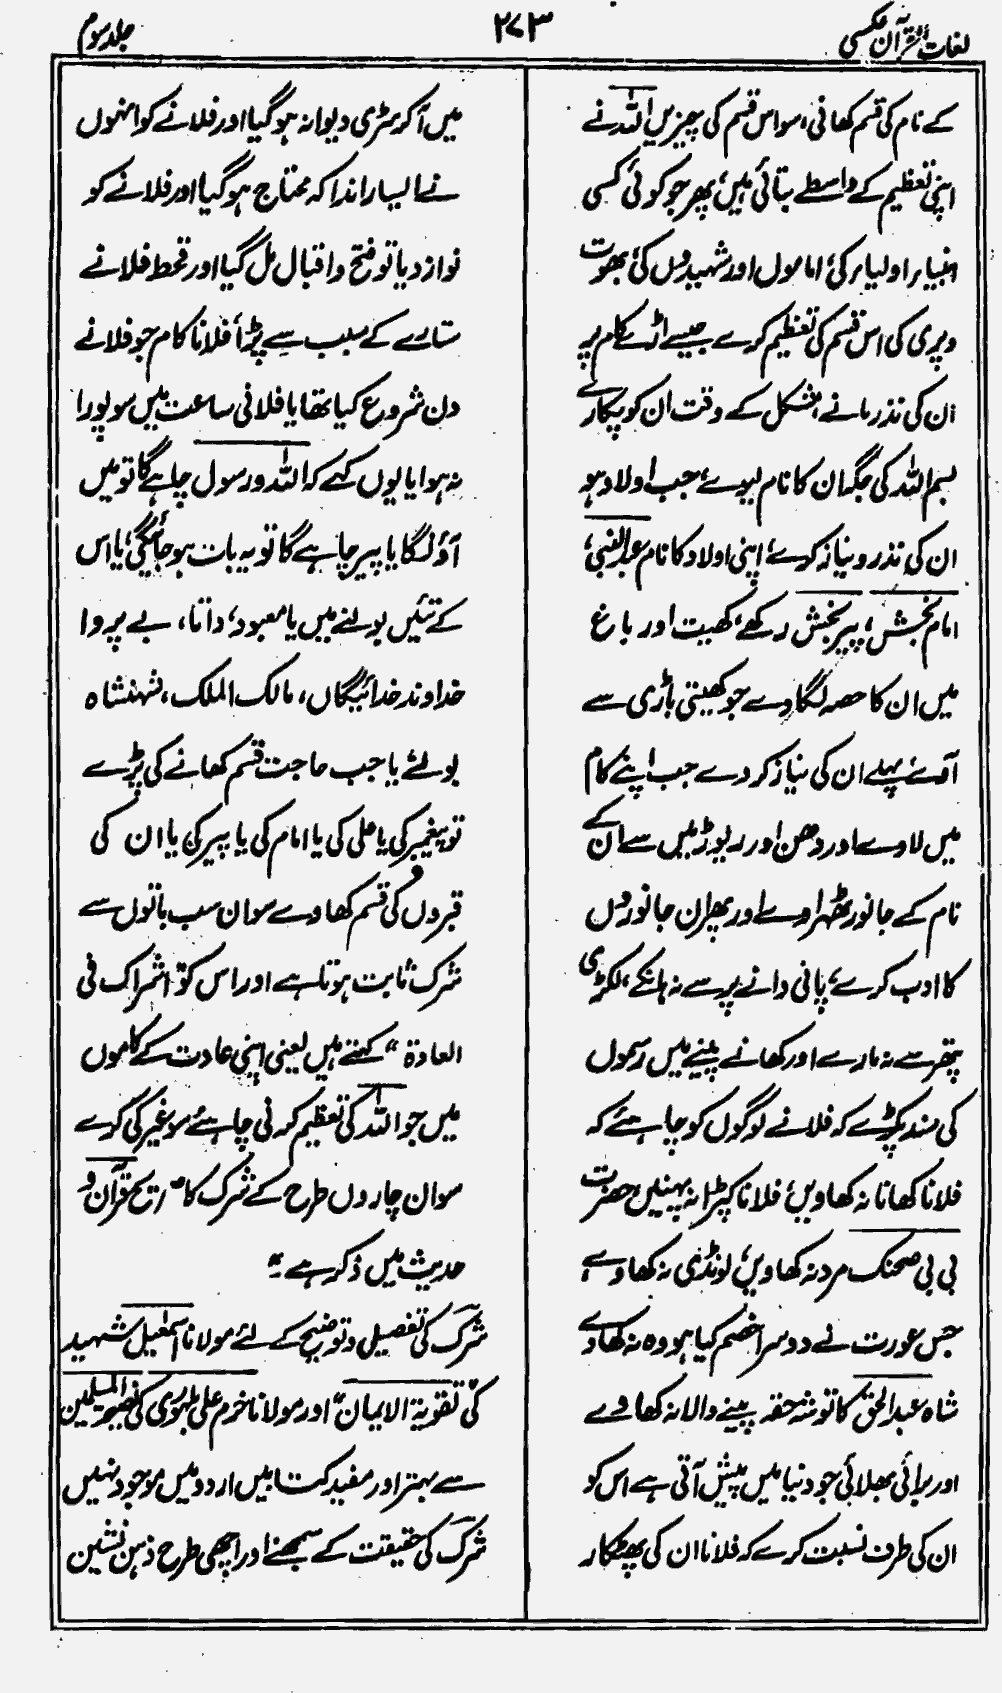 لغات القرآن عکسی
۲۷۳
جلد سوم
کے نام کی قسم کھائی، سو اس قسم کی چیزیں اللہ نے
اپنی تعظیم کے واسطے بتائی ہیں، پھر جو کوئی کسی
انبیاء اولیاء کی، اماموں اور شہیدوں کی، بھوت
و پری کی اس قسم کی تعظیم کرے جیسے اڑے کام پر
ان کی نذر مانے، مشکل کے وقت ان کو پکارے
بسم اللہ کی جگہ ان کا نام لیوے، جب اولاد ہو
ان کی نذر و نیاز کرے، اپنی اولاد کا نام عبدالنبی،
امام بخش، پیر بخش رکھے، کھیت اور باغ
میں ان کا حصہ لگا دے جو کھیتی باڑی سے
آوے پہلے ان کی نیاز کر دے جب اپنے کام
میں لاوے اور دھن اور ریوڑ میں سے ان کے
نام کے جانور ٹھہراوے اور پھر ان جانوروں
کا ادب کرے، پانی دانے پر سے نہ ہانکے، لکڑی
پتھر سے نہ مارے اور کھانے پینے میں رسموں
کی سند پکڑے کہ فلانے لوگوں کو چاہئے کہ
فلانا کھانا نہ کھاویں، فلانا کپڑا نہ پہنیں، حضرت
بی بی صحنک مرد نہ کھاویں، لونڈی نہ کھاوے،
جس عورت نے دوسرا خصم کیا ہو وہ نہ کھاوے
شاہ عبد الحق کا توشہ حقہ پینے والا نہ کھاوے
اور برائی بھلائی جو دنیا میں پیش آتی ہے اس کو
ان کی طرف نسبت کرے کہ فلانا ان کی پھٹکار
میں آکر سڑی دیوانہ ہو گیا اور فلانے کو انہوں
نے ایسا راندا کہ محتاج ہو گیا اور فلانے کو
نواز دیا تو فتح و اقبال مل گیا اور قحط فلانے
ستارے کے سبب سے پڑا، فلانا کام جو فلانے
دن شروع کیا تھا یا فلانی ساعت میں سو پورا
نہ ہوا، یا یوں کہے کہ اللہ و رسول چاہے گا تو میں
آؤں گا یا پیر چاہے گا تو یہ بات ہو جائیگی، یا اس
کے تئیں بولنے میں یا معبود، داتا، بے پروا
خداوند خدائیگاں، مالک الملک، شہنشاہ
بولے یا جب حاجت قسم کھانے کی پڑے
تو پیغمبر کی یا علی کی یا امام کی یا پیر کی یا ان کی
قبروں کی قسم کھاوے سو ان سب باتوں سے
شرک ثابت ہوتا ہے اور اس کو "اشراک فی
العادۃ" کہتے ہیں یعنی اپنی عادت کے کاموں
میں جو اللہ کی تعظیم کرنی چاہئے سو غیر کی کرے
سو ان چاروں طرح کے شرک کا صریح قرآن و
حدیث میں ذکر ہے"
شرک کی تفصیل و توضیح کے لئے مولانا اسمٰعیل شہید
کی "تقویۃ الایمان" اور مولانا خرم علی بلہوری کی نصیحۃ المسلمین
سے بہتر اور مفید کتابیں اردو میں موجود نہیں
شرک کی حقیقت کے سمجھنے اور اچھی طرح ذہن نشین